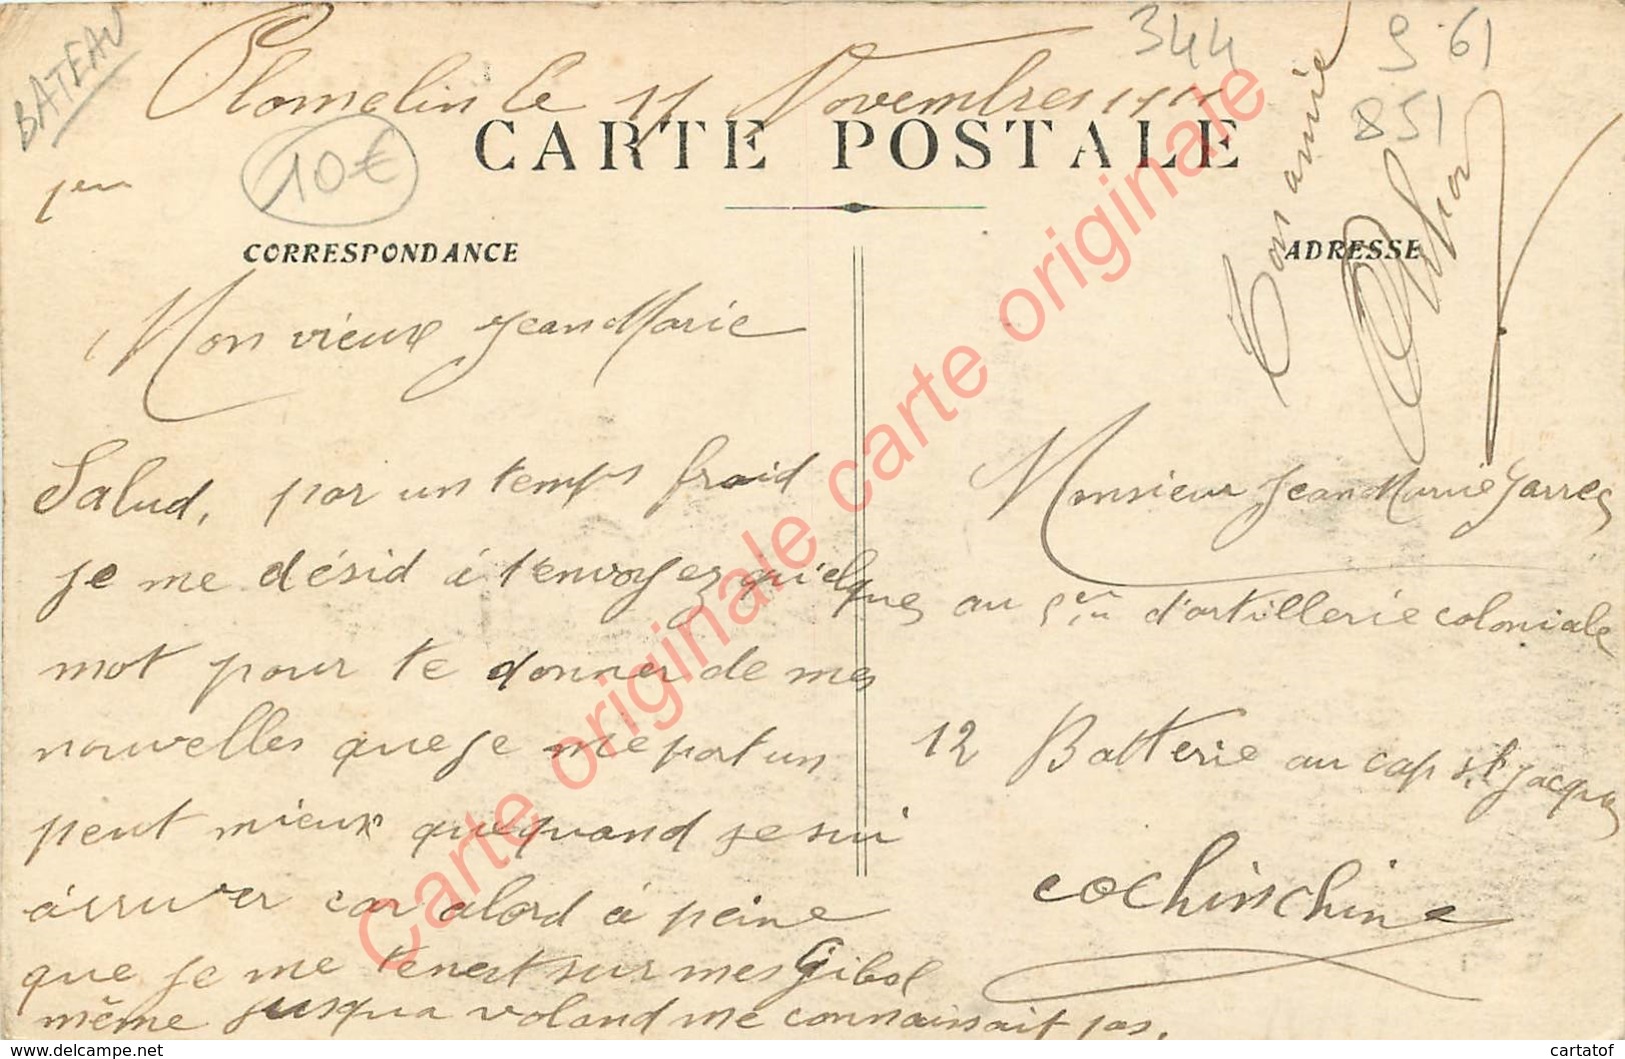 BATEAU
344
9 61
851
Plomelin le 17 Novembres 1911
CARTE POSTALE
10€
1er
CORRESPONDANCE
ADRESSE
Ton amie
Mon vieux Jean Marie
Salud, par un temps fraid
je me désid à t'envoyez quelques
mot pour te donner de mes
nouvelles que je me port un
peut mieux que quand je sui
àrruver car abord à peine
que je me tenert sur mes Gibol
même jusqua voland me connaissait pas.
Monsieur Jean Marie Jarres
au 5em d'artillerie coloniale
12 Batterie au cap st Jacques
cochinchine
Carte originale carte originale carte originale
cartatof
delcampe.net